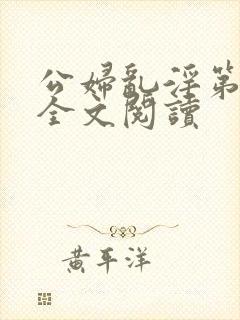 公婦亂淫第
全文閱讀
黃平洋